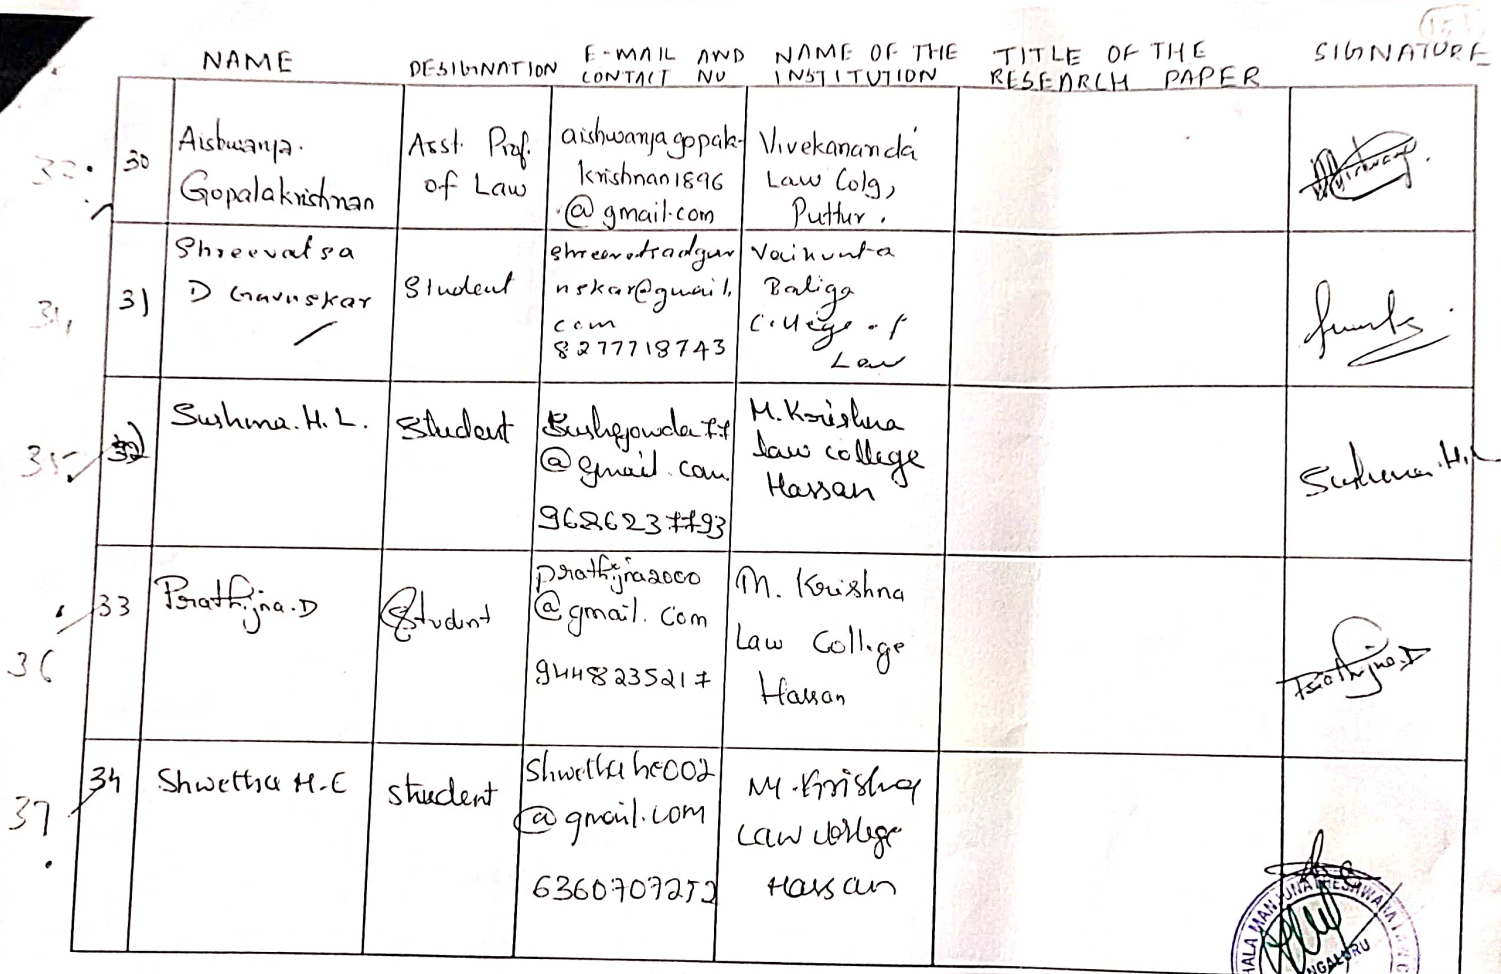 NAME
DESIGNATION
E-MAIL AND
CONTACT NO
NAME OF THE
INSTITUTION
TITLE OF THE
RESEARCH PAPER
SIGNATURE
30
Aishwarya.
Gopalakrishnan
Asst. Prof.
of Law
aishwaryagopak-
krishnan1896
@gmail.com
Vivekananda
Law Colg,
Puttur.
34,
31)
Shreevatsa
D Gavnskar
Student
nskar@gmail.
com
8277718743
Vaikunta
Baliga
College of
Law
35
32)
Sushma.H.L.
Student
Sushgowda77
@gmail.com
9686237793
M.Krishna
law college
Hassan
Sushma.H.L
36
33
Prathijna.D
Student
prathijna2000
@gmail.com
9448235217
M. Krishna
Law College
Hassan
Prathijna.D
37
34
Shwetha H.C
student
Shwethahc002
@gmail.com
6360707252
M.Krishna
Law college
Hassan